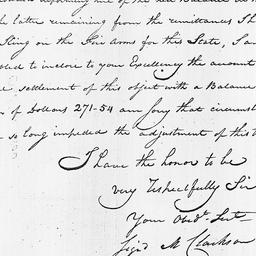 the latter remaining from the remittances
King on the Fire Arms for this State, I am
to inclose to your Excellency the account
settlement of this object with a Balance
of Dollars 271-54 am sory that circumst
so long impeded the adjustment of this
I have the honor to be
very respectfully Sir
Your Obdt. Sert—
Sign'd M Clarkson